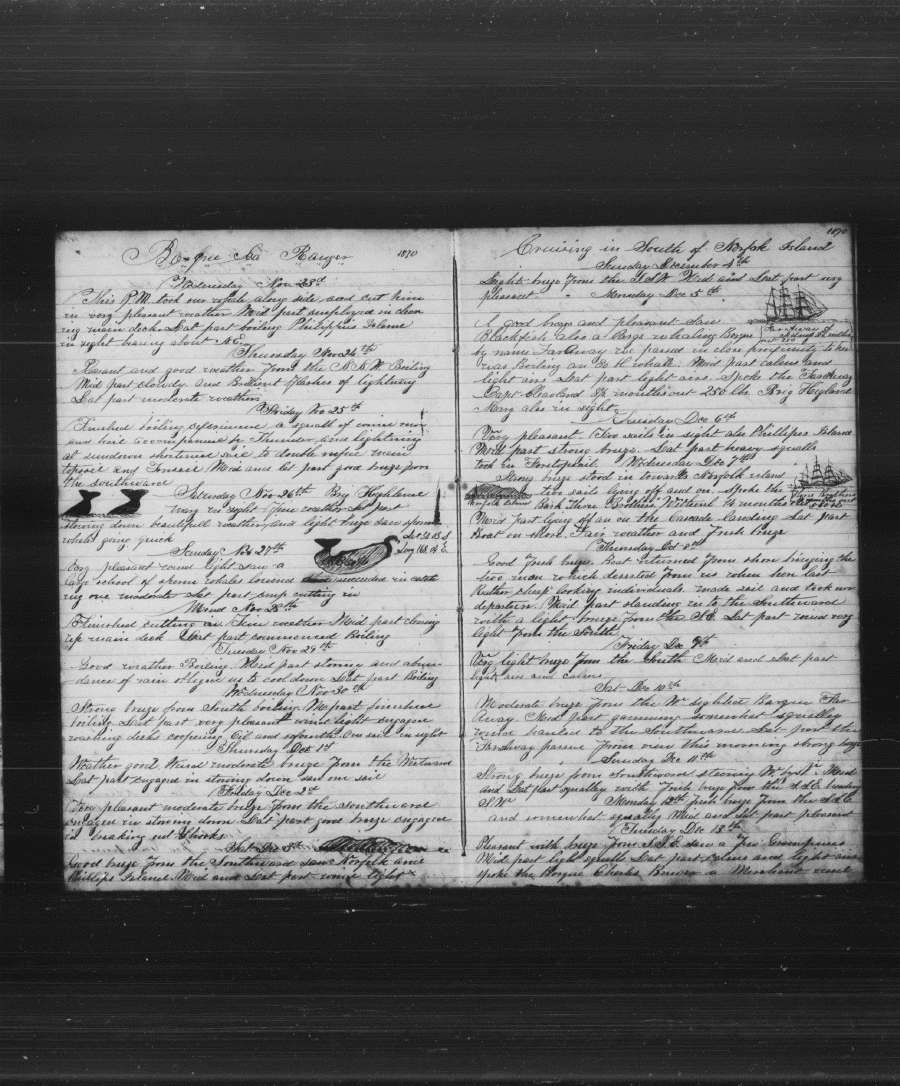 Barque Sea Ranger 1870
Wednesday Nov 23rd
This P.M. took our whale along side and cut him
in very pleasant weather Mid part employed in clear
ing main deck. Last part boiling Philipps Island
in sight bearing about
Thursday Nov 24th
Pleasant and good weather from the Boiling
Mid part cloudy and Brilliant flashes of lightning
Last part moderate weather
Friday Nov 25th
Finished boiling experienced a squall of wind rain
and hail accompanied by Thunder and lightning
at sundown shortened sail to double reefed main
topsail and foresail Mid and Last part good breeze from
the southward
Saturday Nov 26th Brig Highland
Mary in sight fine weather Last part
stowing down beautifull weather and light breeze saw sperm
whales going quick
Sunday Nov 27th
Very pleasant wind light saw a
large school of sperm whales lowered succeeded in catch
ing one moderate Last part emp cutting in
Mond Nov 28th
Finished cutting in fine weather Mid part clearing
up main deck Last part commenced Boiling
Tuesday Nov 29th
Good weather Boiling. Mid part stormy and abun
dance of rain oblige us to cool down Last part Boiling
Wednesday Nov 30th
Strong breeze from South boiling M part finished
boiling. Last part very pleasant wind light engaged
washing decks coopering Oil and so forth One sail in sight
Thursday Dec 1st
Weather good Wind moderate breeze from the Westward
Last part engaged in stowing down saw one sail
Friday Dec 2nd
Very pleasant moderate breeze from the Southward
engaged in stowing down Last part good breeze engaged
in breaking out Shooks
Sat Dec 3rd
Good breeze from the Southward saw Norfolk and
Phillips Island Mid and Last part wind light
1870
Cruising in South of Norfolk Island
Sunday December 4th
Slight breeze from the S.S.W. Mid and Last part very
pleasant Monday Dec 5th
A good breeze and pleasant Saw
Blackfish also a Large whaling Barque
by name Faraway we passed in close proximity to her
was Boiling an whale. Mid part calms and
light airs Last part light airs. Spoke the Faraway
Capt months out 250 bls. Brig Highland
Mary also in sight
Tuesday Dec 6th
Very pleasant. Two sails in sight also Phillips Island
Mid part strong breeze. Last part heavy squalls
took in Foretopsail. Wednesday Dec 7th
Strong breeze stood in towards Norfolk island
two sails lying off and on. Spoke the
Norfolk Island Bark Three Brothers months out
Mid part lying off an on the Cascade landing Last part
Boat on shore. Fair weather and fresh breeze
Thursday Dec 8th
Good Fresh breeze. Boat returned from shore bringing the
two men which deserted from us when here last
Rather cheap looking individuals made sail and took our
departure. Mid part standing in to the Southward
with a light breeze from the S.E. Last part wind very
light from the South
Friday Dec 9th
Very light breeze from the South Mid and Last part
light airs and calms
Sat Dec 10th
Moderate breeze from the W sighted Barque Far
Away. Mid part gamming somewhat squalley
wind hauled to the Southward. Last part the
Faraway passed from view this morning strong breeze
Sunday Dec 11th
Strong breeze from Southward steering Mid
and Last part squalley with fresh breeze from the S.S.E. heading
S.W. Monday 12th fresh breeze from the S.S.E.
and somewhat squally Mid and Last part pleasant
Tuesday Dec 13th
Pleasant with breeze from S.S.E. saw a few Grampuses
Mid part light squalls Last part calms and light airs
spoke the Barque Charles Brewer a Merchant vessel